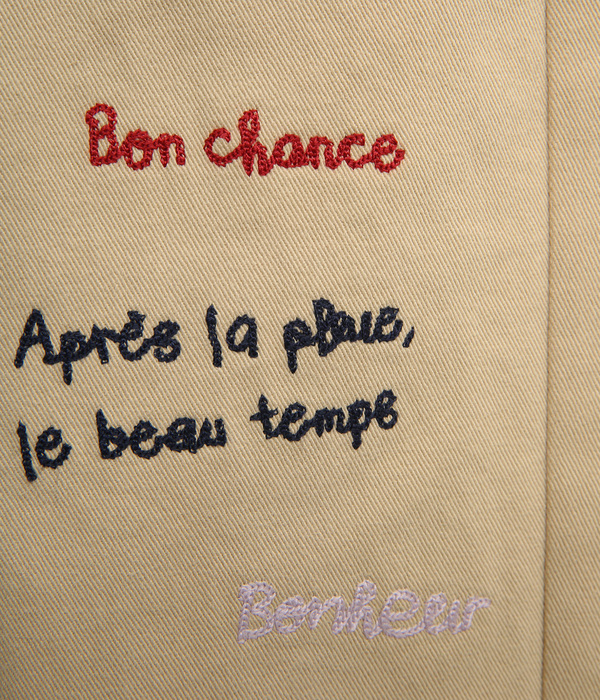 Bon chance
Après la pluie,
le beau temps
Bonheur